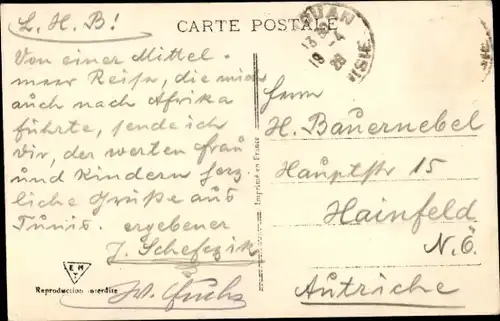 CARTE POSTALE
L. H. B!
Von einer Mittel-
meer Reise, die mich
auch nach Afrika
führte, sende ich
Dir, der werten Frau
und Kindern herz-
liche Grüße aus
Tunis. ergebener
J. Schefczik
W. Fuchs
EM
T
Reproduction interdite
Imprimé en France
UAN
13 14
18 28
ISIE
Herrn
H. Bauernebel
Hauptstr 15
Hainfeld
N.Ö.
Autriche
ISIE